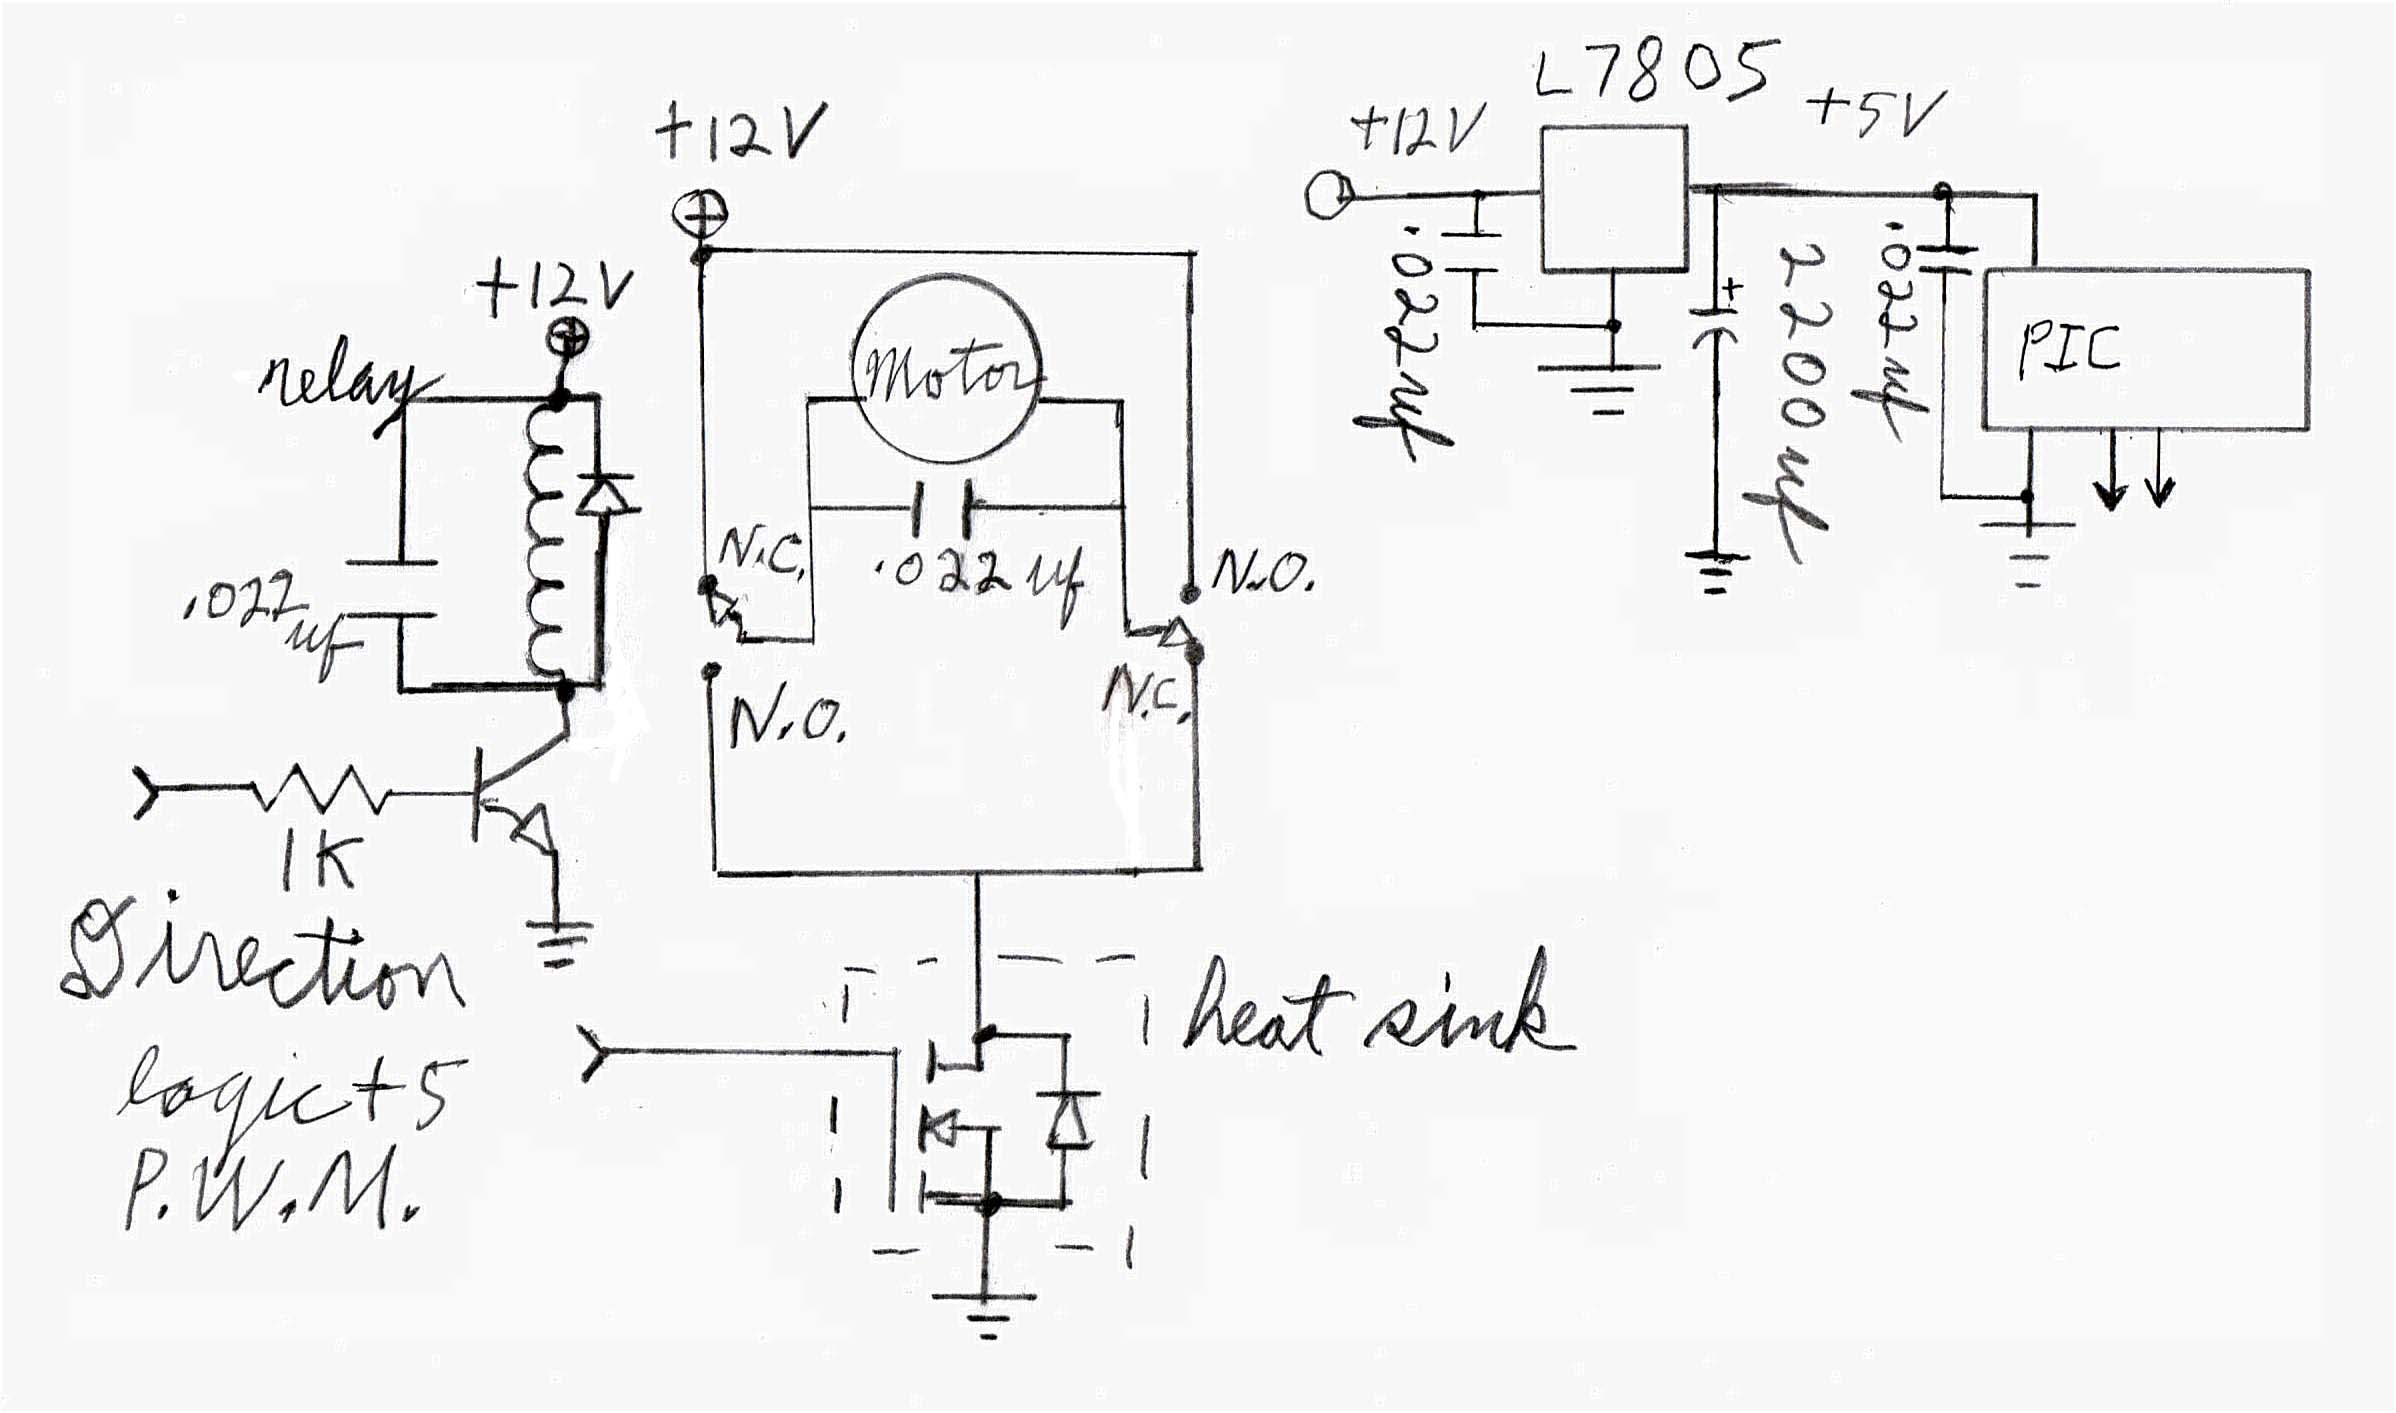 +12V
+12V
relay
.022
uf
1K
Direction
logic +5
P.W.M.
Motor
N.C.
.022 uf
N.O.
N.O.
N.C.
heat sink
L7805
+12V
+5V
.022uf
2200uf
.022uf
PIC
+